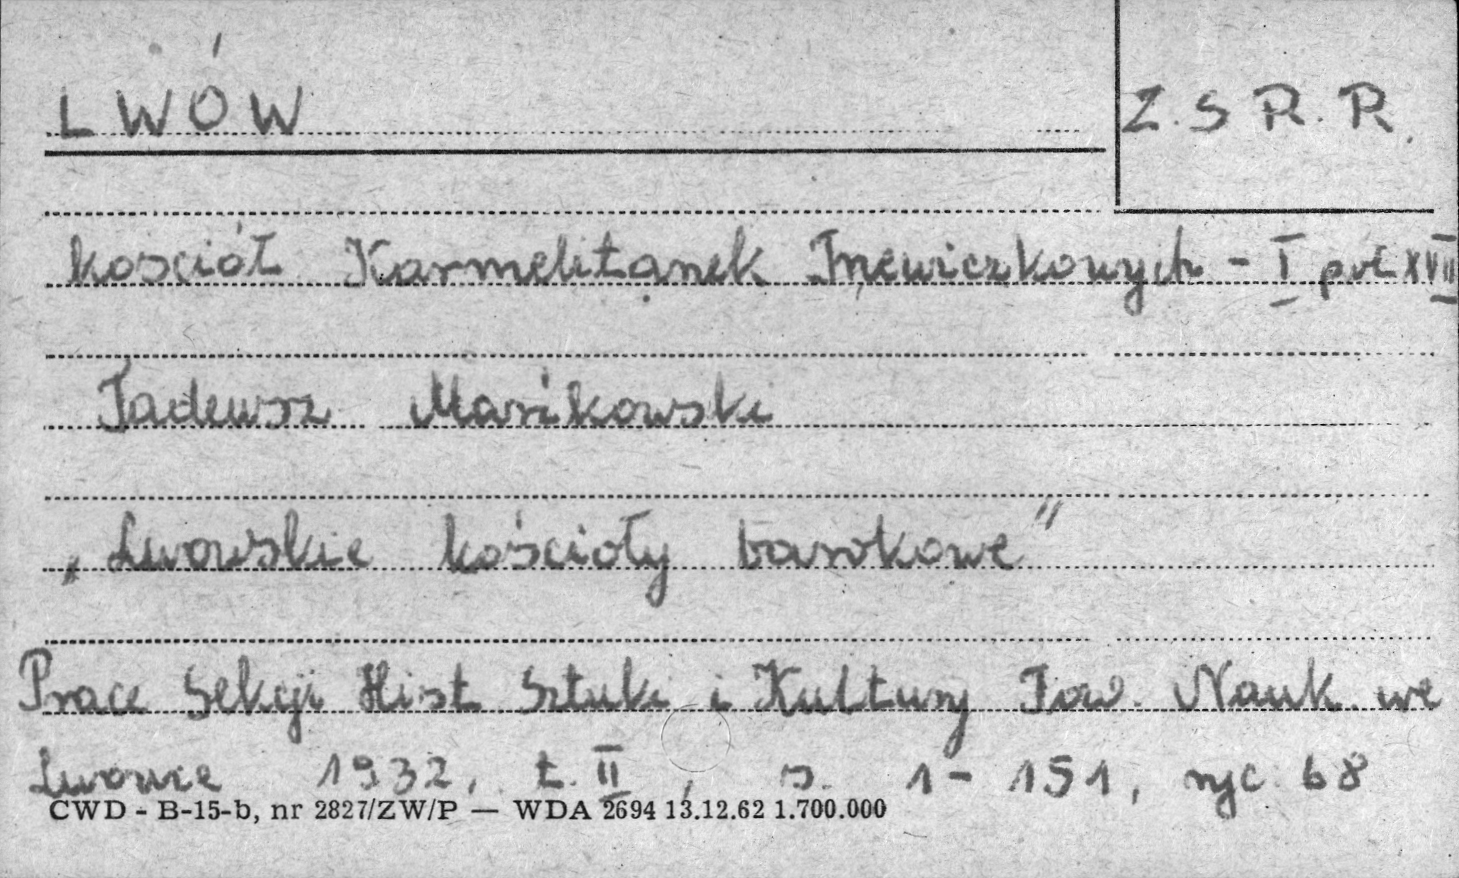 LWÓW
Z.S.R.R.
kościół Karmelitanek Trzewiczkowych - I poł XVII
Tadeusz Mańkowski
„Lwowskie kościoły barokowe"
Prace Sekcji Hist Sztuki i Kultury Tow. Nauk. we
Lwowie 1932, t. II, s. 1-151, ryc. 68
CWD - B-15-b, nr 2827/ZW/P — WDA 2694 13.12.62 1.700.000